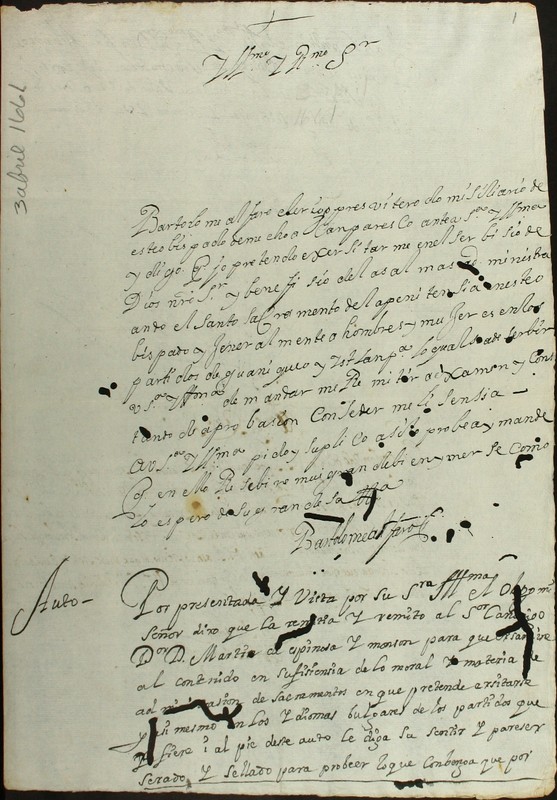 1
Yllmo Y Rmo Sr
3 abril 1661
Bartolome alfaro clerigo presvitero domisiliario de
este obispado de mechoacan paresco ante vSra Yllma
y digo. q yo pretendo exersitarme en el serbisio de
Dios nro Sr y benefisio de las almas ministra
ando el santo sacromento de la penitensia en este o
bispado y jeneralmente a hombres y mujeres en los
partidos de guaniqueo y lo qual se a de serbir
vSra Yllma de mandarme Remitir a examen y Cons
tando de aprobasion Consederme lisensia
A vSra Yllma pido y suplico asi lo probea y mande
q en ello Resebire mui gran bien y merse Como
lo espero de su grandesa
Bartolome alfaro
Auto
Por presentada Y Vista por su Sra Yllma el Obispo mi
Señor dixo que la remitia y remitio al Sor Canonigo
Dor D. Martin de espinosa Y monson para que examine
al contenido en sufisiencia de lo moral Y materia de
administrasion de sacramentos en que pretende exsitarse
y asi mesmo en los Ydiomas bulgares de los partidos que
Refiere i al pie deste auto le diga su sentir Y pareser
serado Y sellado para probeer lo que Conbenga que por